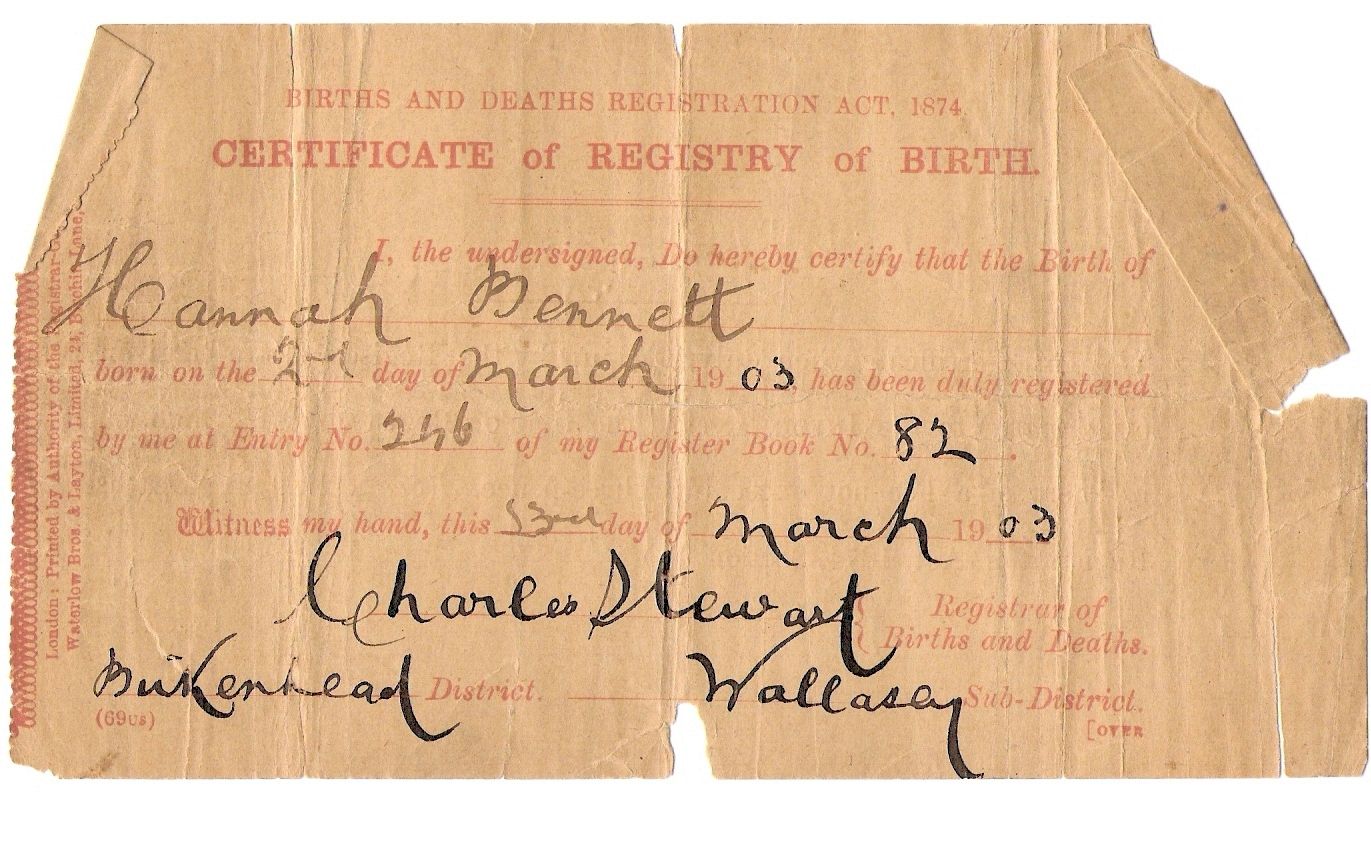 BIRTHS AND DEATHS REGISTRATION ACT, 1874.
CERTIFICATE of REGISTRY of BIRTH.
I, the undersigned, Do hereby certify that the Birth of
Hannah Bennett
born on the 2nd day of March 1903, has been duly registered
by me at Entry No. 246 of my Register Book No. 82.
Witness my hand, this day of March 1903
Charles Stewart { Registrar of
Births and Deaths.
Birkenhead District. Wallasey Sub-District.
(69us)
[OVER
London: Printed by Authority of the Registrar-
Waterlow Bros. & Layton, Limited, 24, Lane,